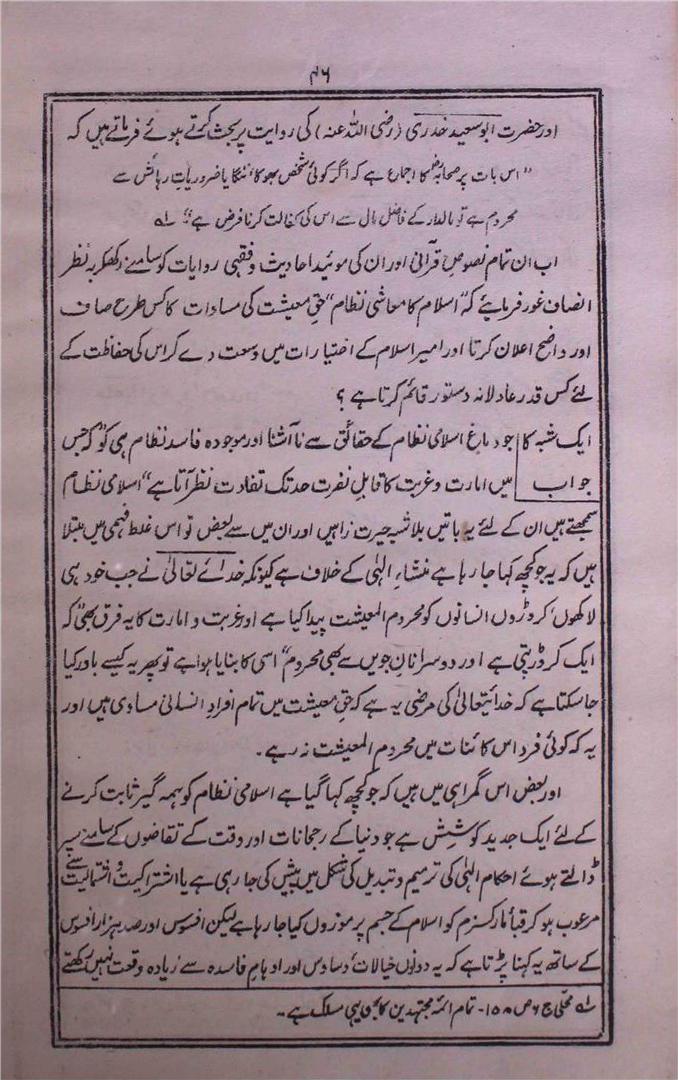 ۴۶
اور حضرت ابو سعید خدری (رضی اللہ عنہ) کی روایت پر بحث کرتے ہوئے فرماتے ہیں کہ
"اس بات پر صحابہؓ کا اجماع ہے کہ اگر کوئی شخص بھوکا ننگا یا ضروریاتِ رہائش سے
محروم ہے تو مالدار کے فاضل مال سے اس کی کفالت کرنا فرض ہے" لہ
اب ان تمام نصوصِ قرآنی اور ان کی موئید احادیث و فقہی روایات کو سامنے رکھکر بہ نظر
انصاف غور فرمایئے کہ "اسلام کا معاشی نظام" حقِ معیشت کی مساوات کا کس طرح صاف
اور واضح اعلان کرتا اور امیر اسلام کے اختیارات میں وسعت دے کر اس کی حفاظت کے
لئے کس قدر عادلانہ دستور قائم کرتا ہے؟
ایک شبہ کا جو دماغ اسلامی نظام کے حقائق سے نا آشنا اور موجودہ فاسد نظام ہی کو "کہ جس
جواب میں امارت و غربت کا قابلِ نفرت حد تک تفاوت نظر آتا ہے" اسلامی نظام
سمجھتے ہیں ان کے لئے یہ باتیں بلاشبہ حیرت زا ہیں اور ان میں سے بعض تو اس غلط فہمی میں مبتلا
ہیں کہ یہ جو کچھ کہا جا رہا ہے منشاءِ الٰہی کے خلاف ہے کیونکہ خدائے تعالیٰ نے جب خود ہی
لاکھوں کروڑوں انسانوں کو محروم المعیشت پیدا کیا ہے اور غربت و امارت کا یہ فرق بھی "کہ
ایک کروڑ پتی ہے اور دوسرا نانِ جویں سے بھی محروم" اسی کا بنایا ہوا ہے تو پھر یہ کیسے باور کیا
جا سکتا ہے کہ خدائیتعالیٰ کی مرضی یہ ہے کہ حقِ معیشت میں تمام افرادِ انسانی مساوی ہیں اور
یہ کہ کوئی فرد اس کائنات میں محروم المعیشت نہ رہے۔
اور بعض اس گمراہی میں ہیں کہ جو کچھ کہا گیا ہے اسلامی نظام کو ہمہ گیر ثابت کرنے
کے لئے ایک جدید کوشش ہے جو دنیا کے رجحانات اور وقت کے تقاضوں کے سامنے سپر
ڈالتے ہوئے احکام الٰہی کی ترمیم و تبدیل کی شکل میں پیش کی جا رہی ہے یا اشتراکیت و اشتمالیت سے
مرعوب ہو کر قبأ مارکسزم کو اسلام کے جسم پر موزوں کیا جا رہا ہے لیکن افسوس اور صد ہزار افسوس
کے ساتھ یہ کہنا پڑتا ہے کہ یہ دونوں خیالات وساوس اور اوہامِ فاسدہ سے زیادہ وقعت نہیں رکھتے
لہ محلّی ج ۶ ص ۱۵۸۔ تمام ائمہ مجتہدین کا بھی یہی مسلک ہے۔